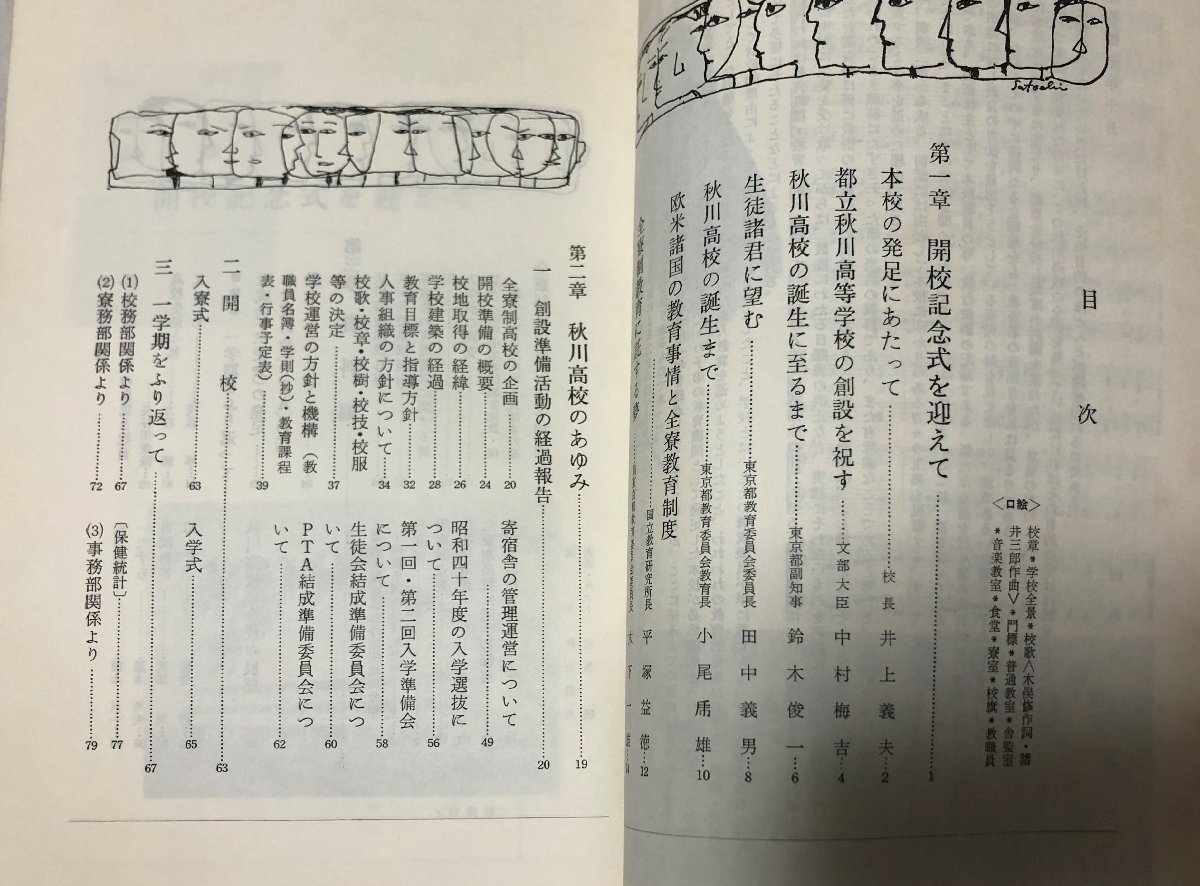 Satoshi
目次
〈口絵〉
校章＊学校全景＊校歌〈木俣修作詞・諸
井三郎作曲〉＊門標＊普通教室＊舎監室
＊音楽教室＊食堂＊寮室＊校旗＊教職員
第一章　開校記念式を迎えて……1
本校の発足にあたって……校長　井上義夫…2
都立秋川高等学校の創設を祝す……文部大臣　中村梅吉…4
秋川高校の誕生に至るまで……東京都副知事　鈴木俊一…6
生徒諸君に望む……東京都教育委員会委員長　田中義男…8
秋川高校の誕生まで……東京都教育委員会教育長　小尾乕雄…10
欧米諸国の教育事情と全寮教育制度
……国立教育研究所長　平塚益徳…12
木下一雄…14
第二章　秋川高校のあゆみ……19
一　創設準備活動の経過報告……20
全寮制高校の企画……20
開校準備の概要……24
校地取得の経緯……26
学校建築の経過……28
教育目標と指導方針……32
人事組織の方針について……34
校歌・校章・校樹・校技・校服
等の決定……37
学校運営の方針と機構（教
職員名簿・学則（抄）・教育課程
表・行事予定表）……39
寄宿舎の管理運営について
……49
昭和四十年度の入学選抜に
ついて……56
第一回・第二回入学準備会
について……58
生徒会結成準備委員会につ
いて……60
PTA結成準備委員会につ
いて……62
二　開校……63
入寮式……63
入学式……65
三　一学期をふり返って……67
(1)校務部関係より……67
(2)寮務部関係より……72
〔保健統計〕……77
(3)事務部関係より……79